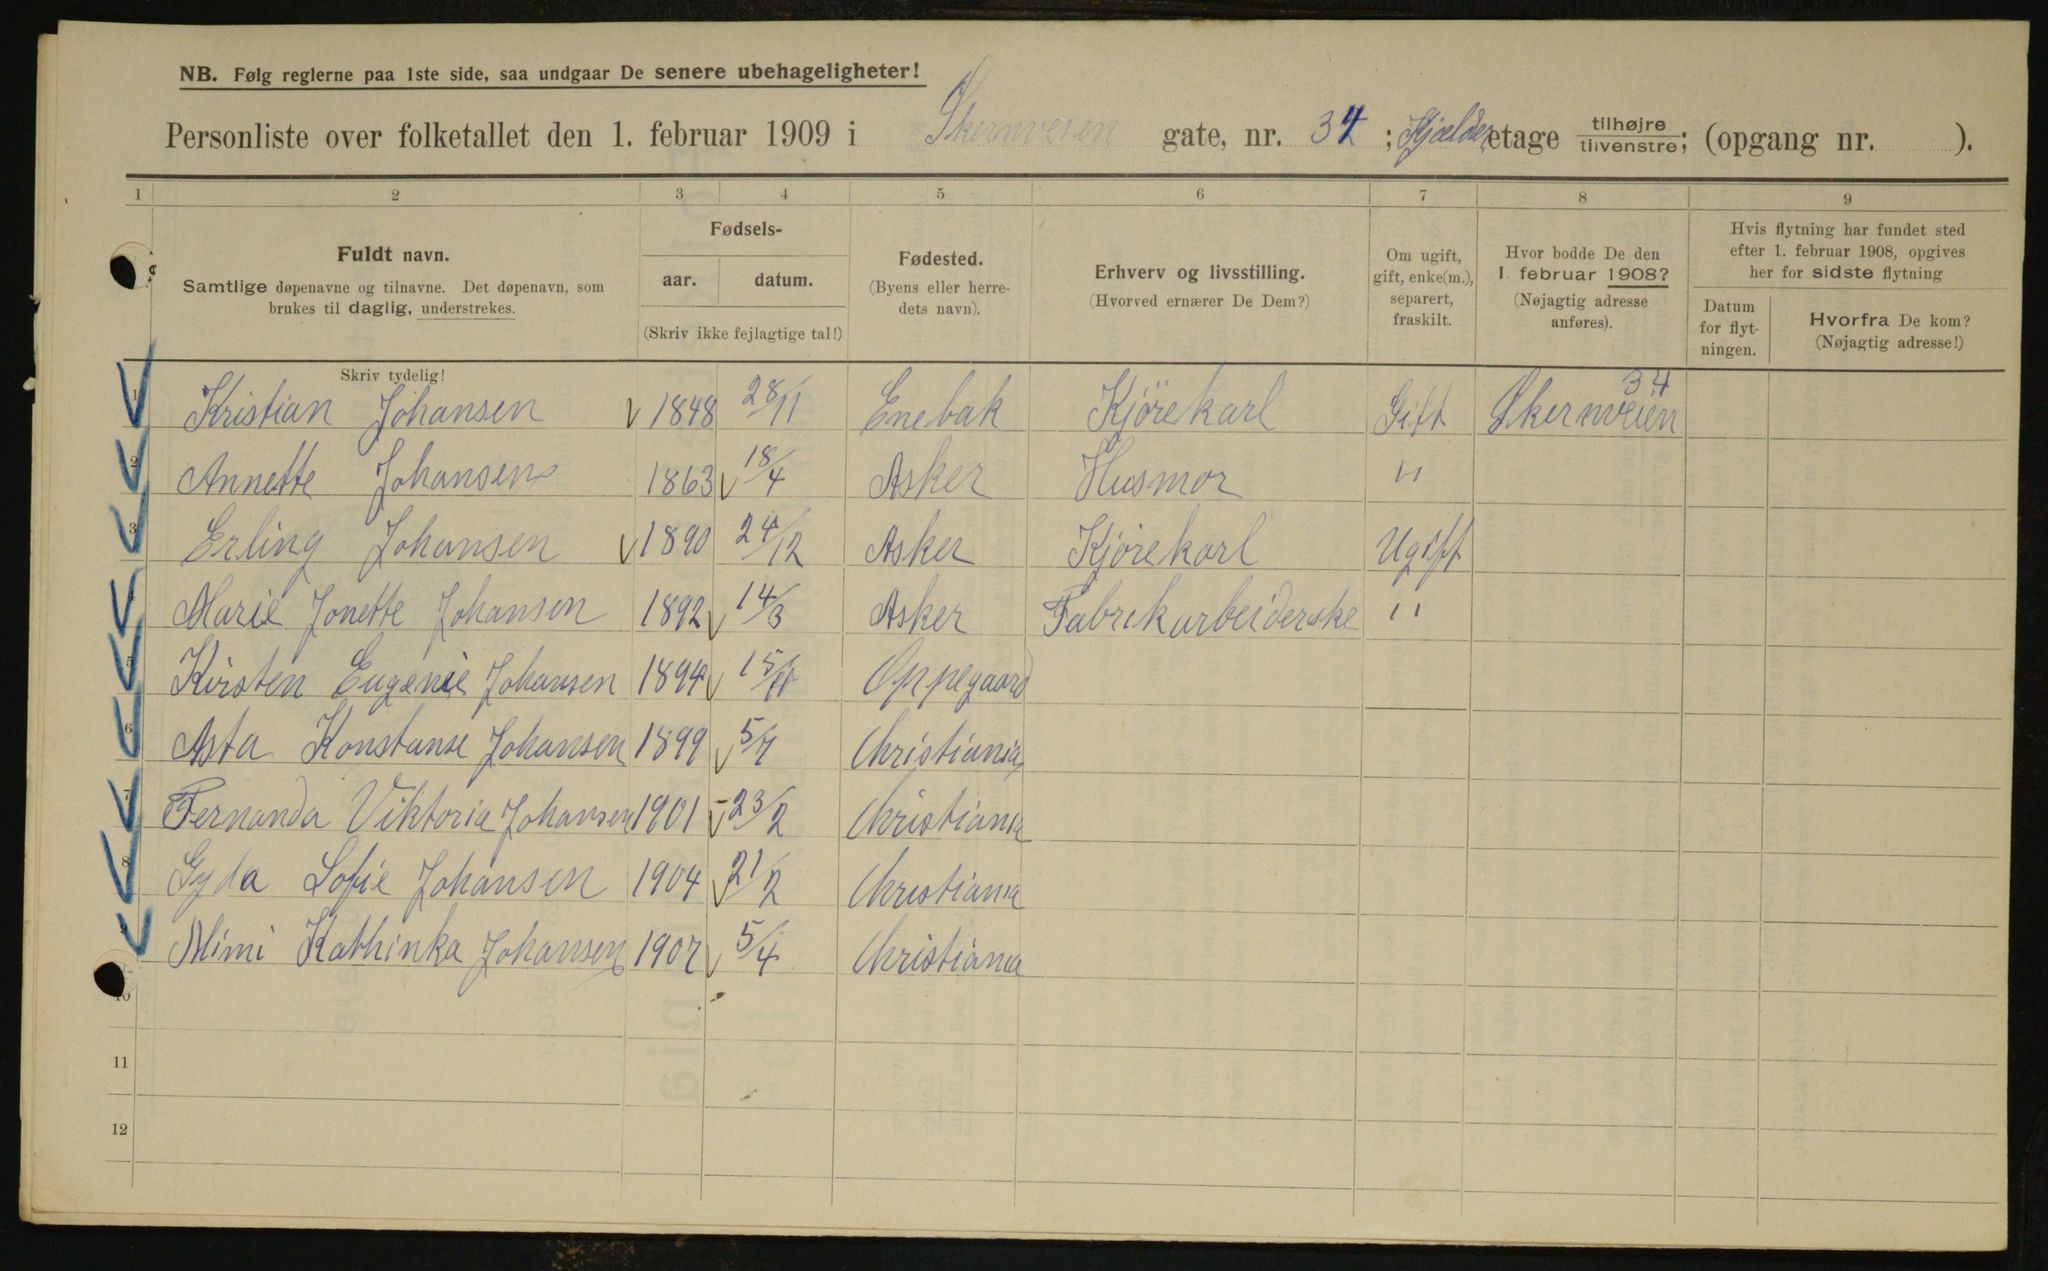 NB. Følg reglerne paa 1ste side, saa undgaar De senere ubehageligheter!
Personliste over folketallet den 1. februar 1909 i Økernveien gate, nr. 34 ; Kjælder etage tilhøjre / tilvenstre; (opgang nr. ).
1 2 3 4 5 6 7 8 9
Fuldt navn.
Samtlige døpenavne og tilnavne. Det døpenavn, som
brukes til daglig, understrekes.
Skriv tydelig!
Fødsels-
aar. datum.
(Skriv ikke fejlagtige tal!)
Fødested.
(Byens eller herre-
dets navn).
Erhverv og livsstilling.
(Hvorved ernærer De Dem?)
Om ugift,
gift, enke(m.),
separert,
fraskilt.
Hvor bodde De den
1. februar 1908?
(Nøjagtig adresse
anføres).
Hvis flytning har fundet sted
efter 1. februar 1908, opgives
her for sidste flytning
Datum
for flyt-
ningen.
Hvorfra De kom?
(Nøjagtig adresse!)
1 Kristian Johansen 1848 28/11 Enebak Kjörekarl Gift Økernveien 34
2 Annette Johansen 1863 18/4 Asker Husmor "
3 Erling Johansen 1890 24/12 Asker Kjörekarl Ugift
4 Marie Jonette Johansen 1892 14/3 Asker Fabrikarbeiderske "
5 Kirsten Eugenie Johansen 1894 15/11 Oppegaard
6 Asta Konstanse Johansen 1899 5/7 Christiania
7 Fernanda Viktoria Johansen 1901 23/2 Christiania
8 Gyda Sofie Johansen 1904 21/2 Christiania
9 Mimi Kathinka Johansen 1907 5/4 Christiania
10
11
12